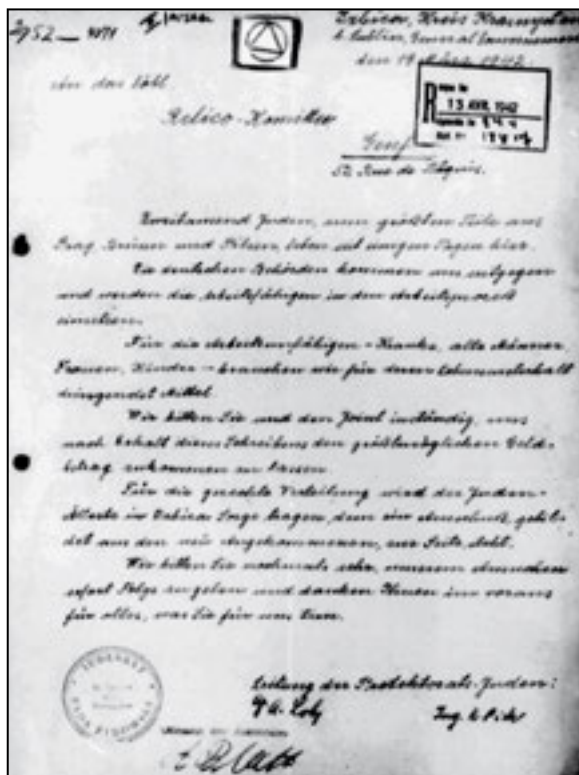 Izbica, Kreis Krasnystaw
d. Lublin, General Gouvernement
den 19. März 1942.
An das löbl.
13 AVR. 1942
Relico-Komitee
Genf
52, Rue de Pâquis.
Zweitausend Juden, zum größten Teile aus
Prag, Brünn und Pilsen, leben seit einigen Tagen hier.
Die deutschen Behörden kommen uns entgegen
und werden die Arbeitsfähigen in den Arbeitsprozeß
einsetzen.
Für die Arbeitsunfähigen - Kranke, alte Männer,
Frauen, Kinder - brauchen wir für deren Lebensunterhalt
dringendst Mittel.
Wir bitten Sie und den Joint inständig, uns
nach Erhalt dieses Schreibens den größtmöglichen Geld-
betrag zukommen zu lassen.
Für die gerechte Verteilung wird der Juden-
Älteste in Izbica Sorge tragen, dem ein Ausschuß, gebil-
det aus den neu Angekommenen, zur Seite steht.
Wir bitten Sie nochmals sehr, unserem Ansuchen
sofort Folge zu geben und danken Ihnen im voraus
für alles, was Sie für uns tun.
JUDENRAT
RADA ŻYDOWSKA
Leitung der Protektorats-Juden: